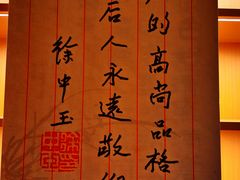 的高尚品格
后人永遠敬仰
徐中玉